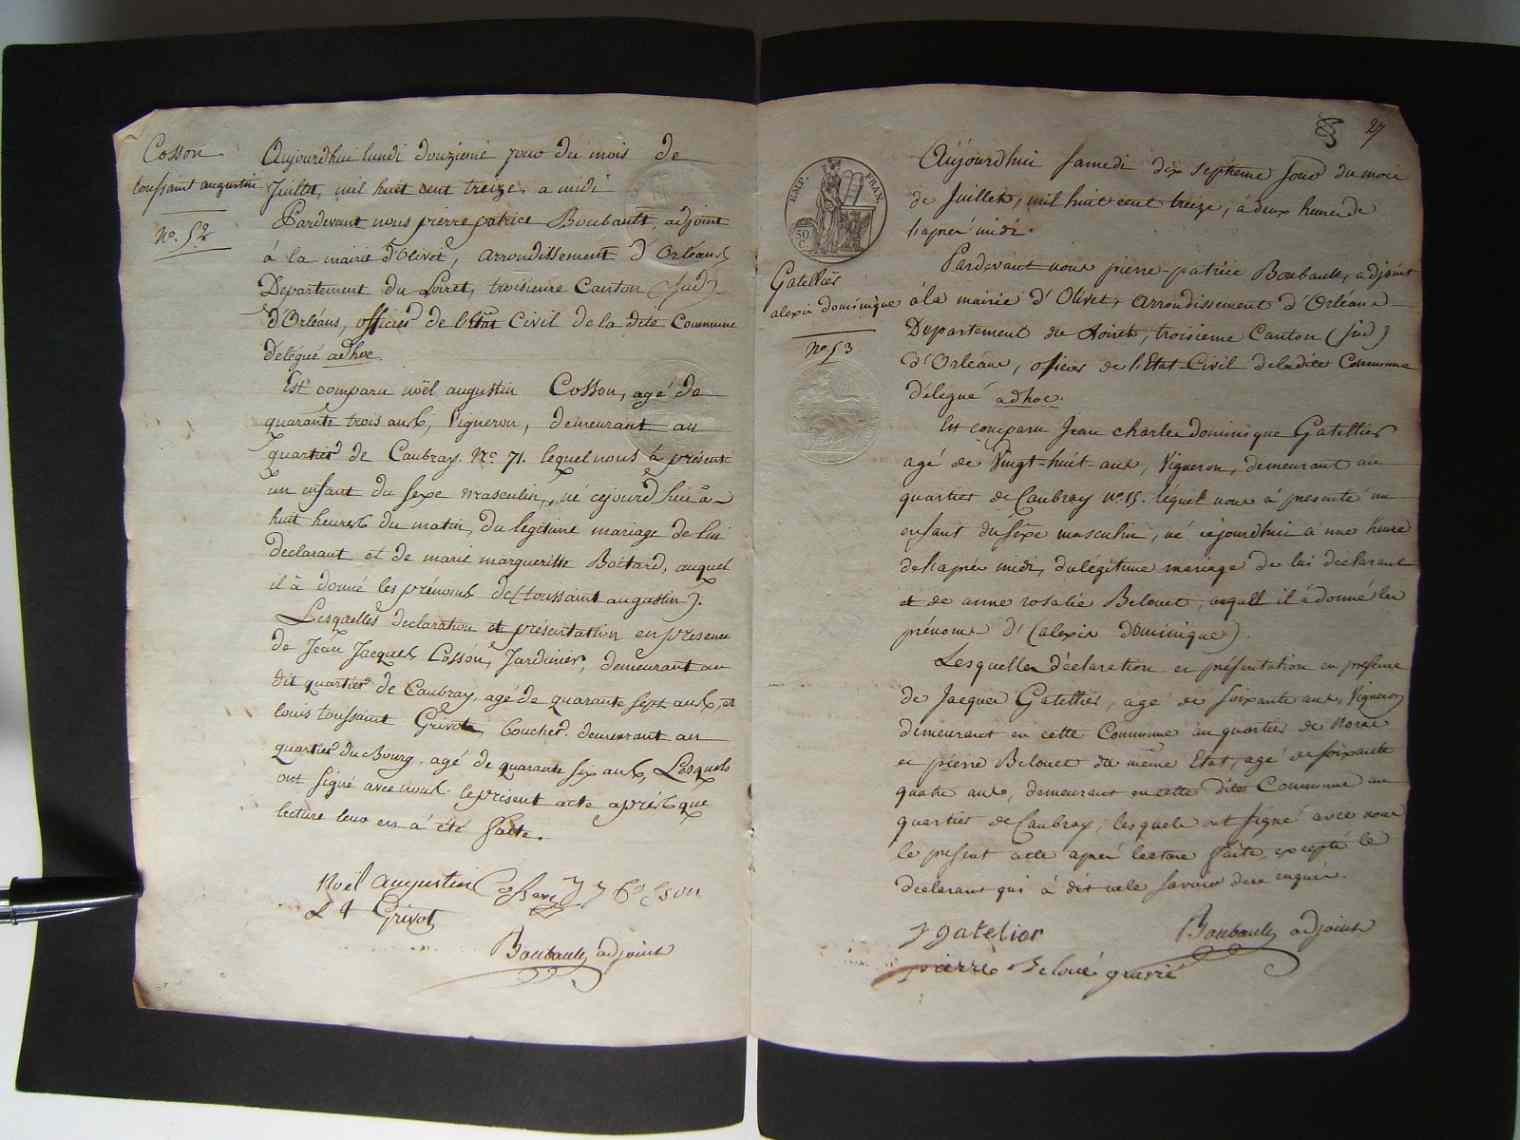 Cosson
toussaint augustin
No. 52
Aujourdhui lundi douzieme jour du mois de
Juillet, mil huit cent treize, a midi
Pardevant nous pierre patrice Boubault, adjoint
à la mairie d'Olivet, arrondissement d'Orléans
Departement du Loiret, troisieme Canton (sud)
d'Orléans, officier de l'Etat Civil de la dite Commune
délégué adhoc.
Est comparu noël augustin Cosson, agé de
quarante trois ans, Vigneron, demeurant au
quartier de Caubray No. 71. lequel nous à présenté
un enfant du sexe masculin, né cejourdhui à
huit heures du matin, du légitime mariage de lui
declarant et de marie margueritte Bottard, auquel
il à donné les prénoms de (toussaint augustin).
Lesquelles declaration et présentation en présence
de Jean Jacques Cosson, Jardinier, demeurant au
dit quartier de Caubray, agé de quarante sept ans, et
louis toussaint Grivot, boucher demeurant au
quartier du Bourg, agé de quarante six ans, Lesquels
ont signé avec nous le présent acte après que
lecture leur en à été faite.
Noël augustin Cosson J J Cosson
L t Grivot
Boubault adjoint
27
EMP. FRAN.
50 C.
Gatellier
alexis dominique
No. 53
Aujourdhui samedi dix septieme jour du mois
de Juillet, mil huit cent treize, à deux heures de
l'aprés midi.
Pardevant nous pierre-patrice Boubault, adjoint
à la mairie d'Olivet, arrondissement d'Orléans
Departement du Loiret, troisieme Canton (sud)
d'Orléans, officier de l'Etat-Civil de la dite Commune
délégué adhoc.
Est comparu Jean charles dominique Gatellier
agé de Vingt-huit ans, Vigneron, demeurant au
quartier de Caubray no. 15. lequel nous à presenté un
enfant du sexe masculin, né cejourdhui a une heure
de l'aprés midi, du légitime mariage de lui declarant
et de anne rosalie Belouet, auquel il à donné les
prénoms d'(alexis dominique).
Lesquelles déclaration et présentation en présence
de Jacques Gatellier, agé de soixante ans, Vigneron
demeurant en cette Commune au quartier de
et pierre Belouet du même Etat, agé de soixante
quatre ans, demeurant en cette dite Commune au
quartier de Caubray, lesquels ont signé avec nous
le présent acte aprés lecture faite, excepté le
declarant qui à dit ne le savoir de ce enquis.
J gatelier Boubault adjoint
pierre Beloué